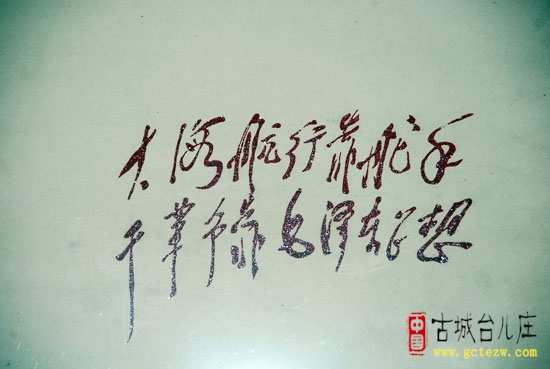 大海航行靠舵手
干革命靠毛泽东思想
中国
古城台儿庄
www.gctezw.com